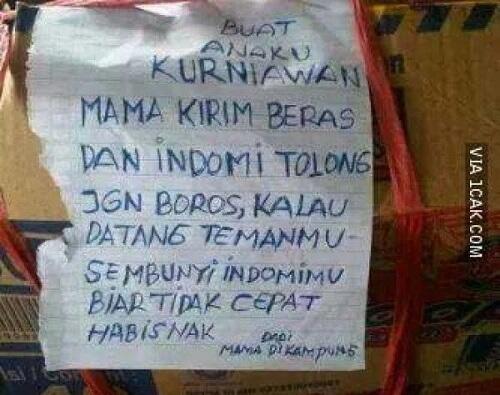 BUAT
ANAKU
KURNIAWAN
MAMA KIRIM BERAS
DAN INDOMI TOLONG
JGN BOROS, KALAU
DATANG TEMANMU-
SEMBUNYI INDOMIMU
BIAR TIDAK CEPAT
HABIS NAK
DARI
MAMA DI KAMPUNG
VIA 1CAK.COM